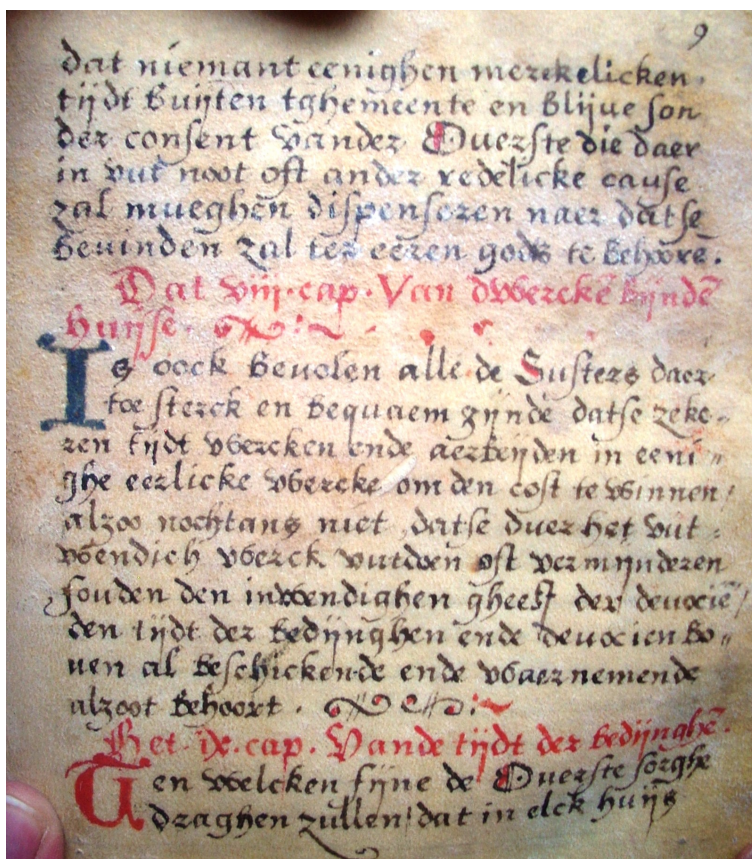 9
dat niemant eenighen merckelicken
tijdt buijten tghemeente en blijue son
der consent vander Ouerste die daer
in vut noot oft ander redelicke cause
zal mueghen dispenseren naer datse
beuinden zal ter eeren gods te behoorē.
Dat viij. cap. Van dwerckē bijndē
huijse.
Is oock beuolen alle de Susters daer
toe sterck en bequaem zijnde datse zeke-
ren tijdt wercken ende aerbeijden in eeni-
ghe eerlicke wercke om den cost te winnen/
alzoo nochtans niet datse duer het vut-
wendich werck vutdoen oft vermijnderen
souden den inwendighen gheest der deuocie/
den tijdt der bedijnghen ende deuocien bo-
uen al beschickende ende waernemende
alzoot behoort.
Het ix. cap. Vande tijdt der bedijnghē.
Ten welcken fijne de Ouerste sorghe
draghen zullen/ dat in elck huijs